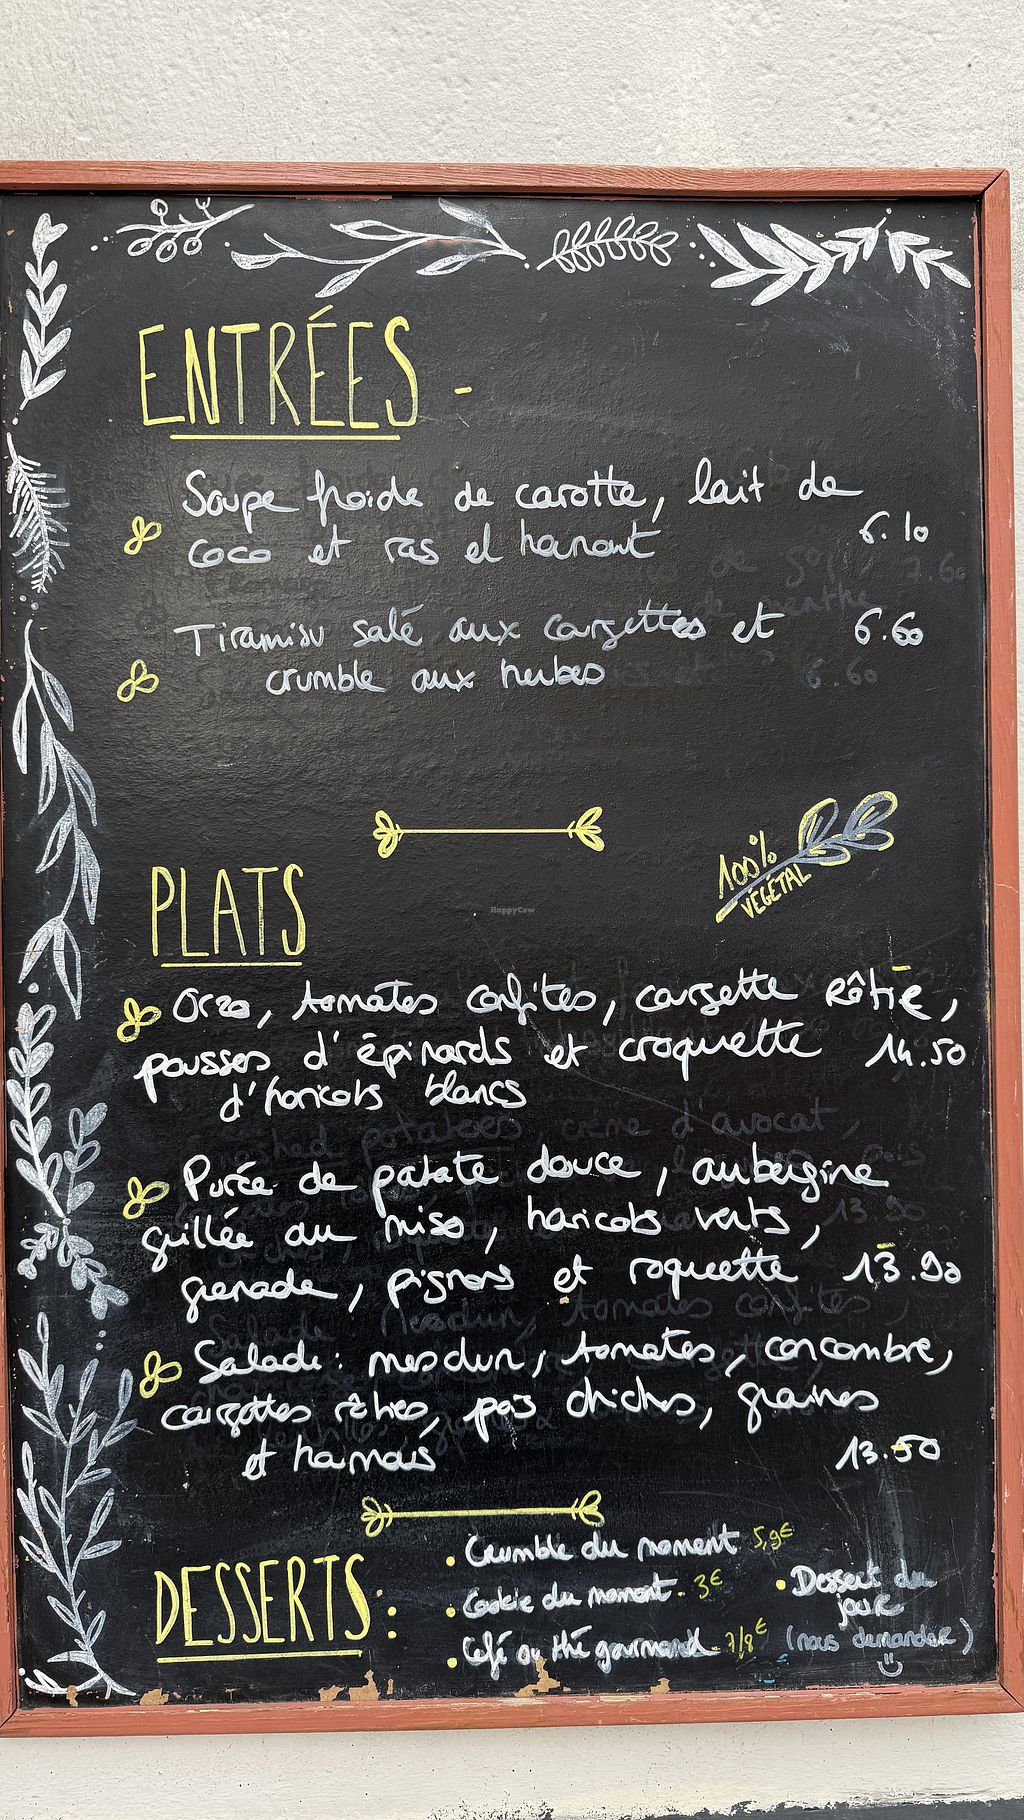 ENTRÉES -
Soupe froide de carotte, lait de
coco et ras el hanout
6.10
Tiramisu salé aux courgettes et
6.60
crumble aux herbes
6.60
7.60
100%
VÉGÉTAL
PLATS
Orzo, tomates confites, courgette Rôtie,
pousses d'épinards et croquette 14.50
d'haricots blancs
Purée de patate douce, aubergine
grillée au miso, haricots verts,
grenade, pignons et roquette 13.90
Salade: mesclun, tomates, concombre,
carottes râpées, pois chiches, graines
et harnais 13.50
DESSERTS:
• Crumble du moment 5,9€
• Cookie du moment - 3€
• Café ou thé gourmand - 7/8€
• Dessert du
jour
(nous demander)
HappyCow